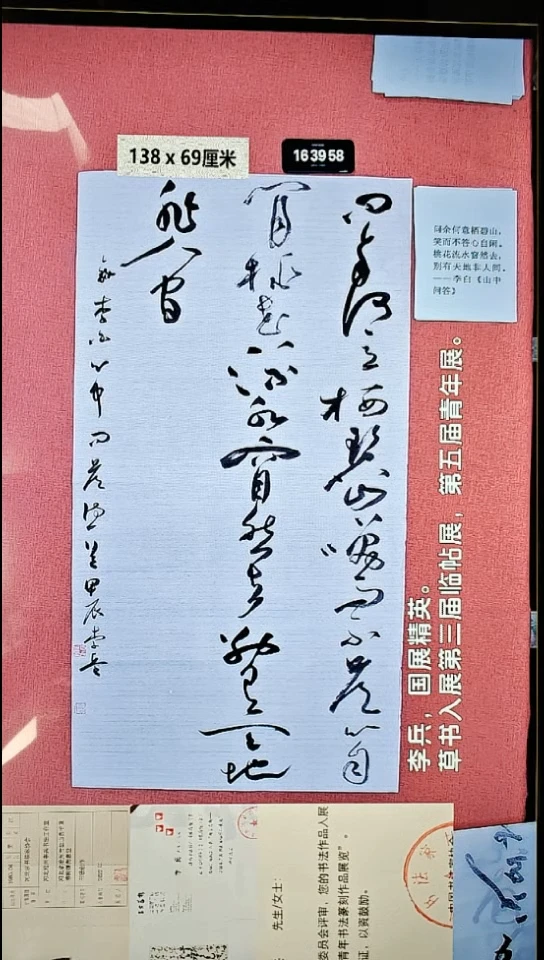 138 x 69厘米
163958
问余何意栖碧山，
笑而不答心自闲。
桃花流水窅然去，
别有天地非人间。
——李白《山中
问答》
问余何意栖碧山笑而不答心自
闲桃花流水窅然去别有天地
非人间
录李白山中问答
甲辰李兵
李兵，国展精英。
草书入展第三届临帖展，第五届青年展。
先生/女士：
委员会评审，您的书法作品入展
青年书法篆刻作品展览”。
证，以资鼓励。